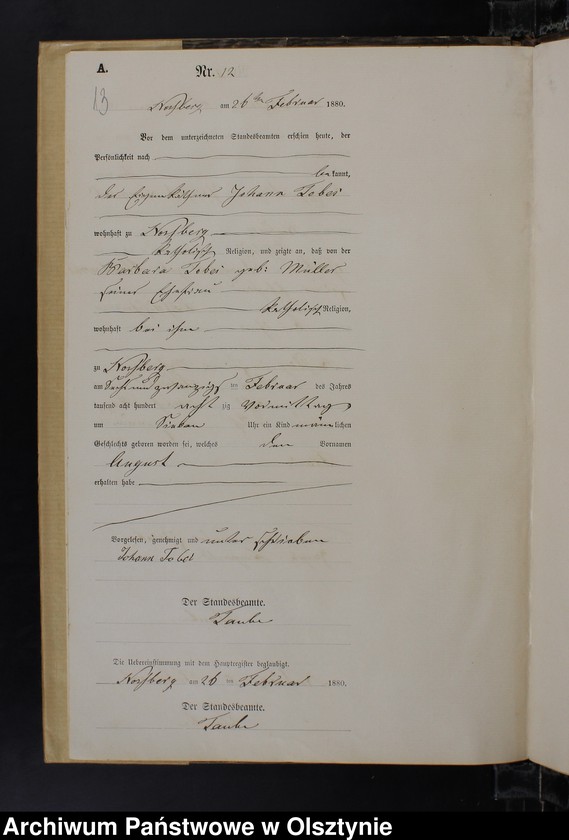 A.
Nr. 12
13
am 26ten Februar 1880.
Vor dem unterzeichneten Standesbeamten erschien heute, der
Persönlichkeit nach
bekannt,
der Eigenkäthner Johann Tobei
wohnhaft zu
katholisch Religion, und zeigte an, daß von der
Barbara Tobei geb: Müller
seiner Ehefrau
katholisch Religion,
wohnhaft bei ihm
zu
am Sechs und zwanzigs ten Februar des Jahres
tausend acht hundert acht zig Vormittag
um Sieben Uhr ein Kind männlichen
Geschlechts geboren worden sei, welches den Vornamen
August
erhalten habe
Vorgelesen, genehmigt und unterschrieben
Johann Tobei
Der Standesbeamte.
Taube
Die Uebereinstimmung mit dem Hauptregister beglaubigt.
am 26 ten Februar 1880.
Der Standesbeamte.
Taube
Archiwum Państwowe w Olsztynie